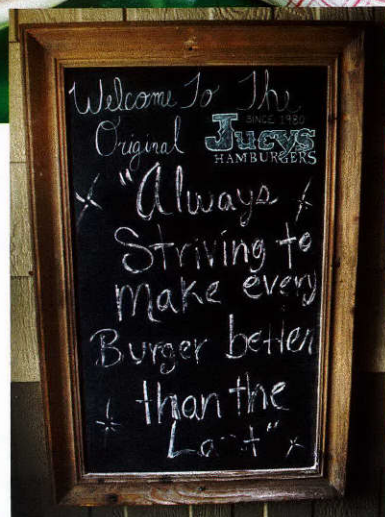 Welcome To The
Original
SINCE 1980
Jucys
HAMBURGERS
"Always
Striving to
make every
Burger better
than the